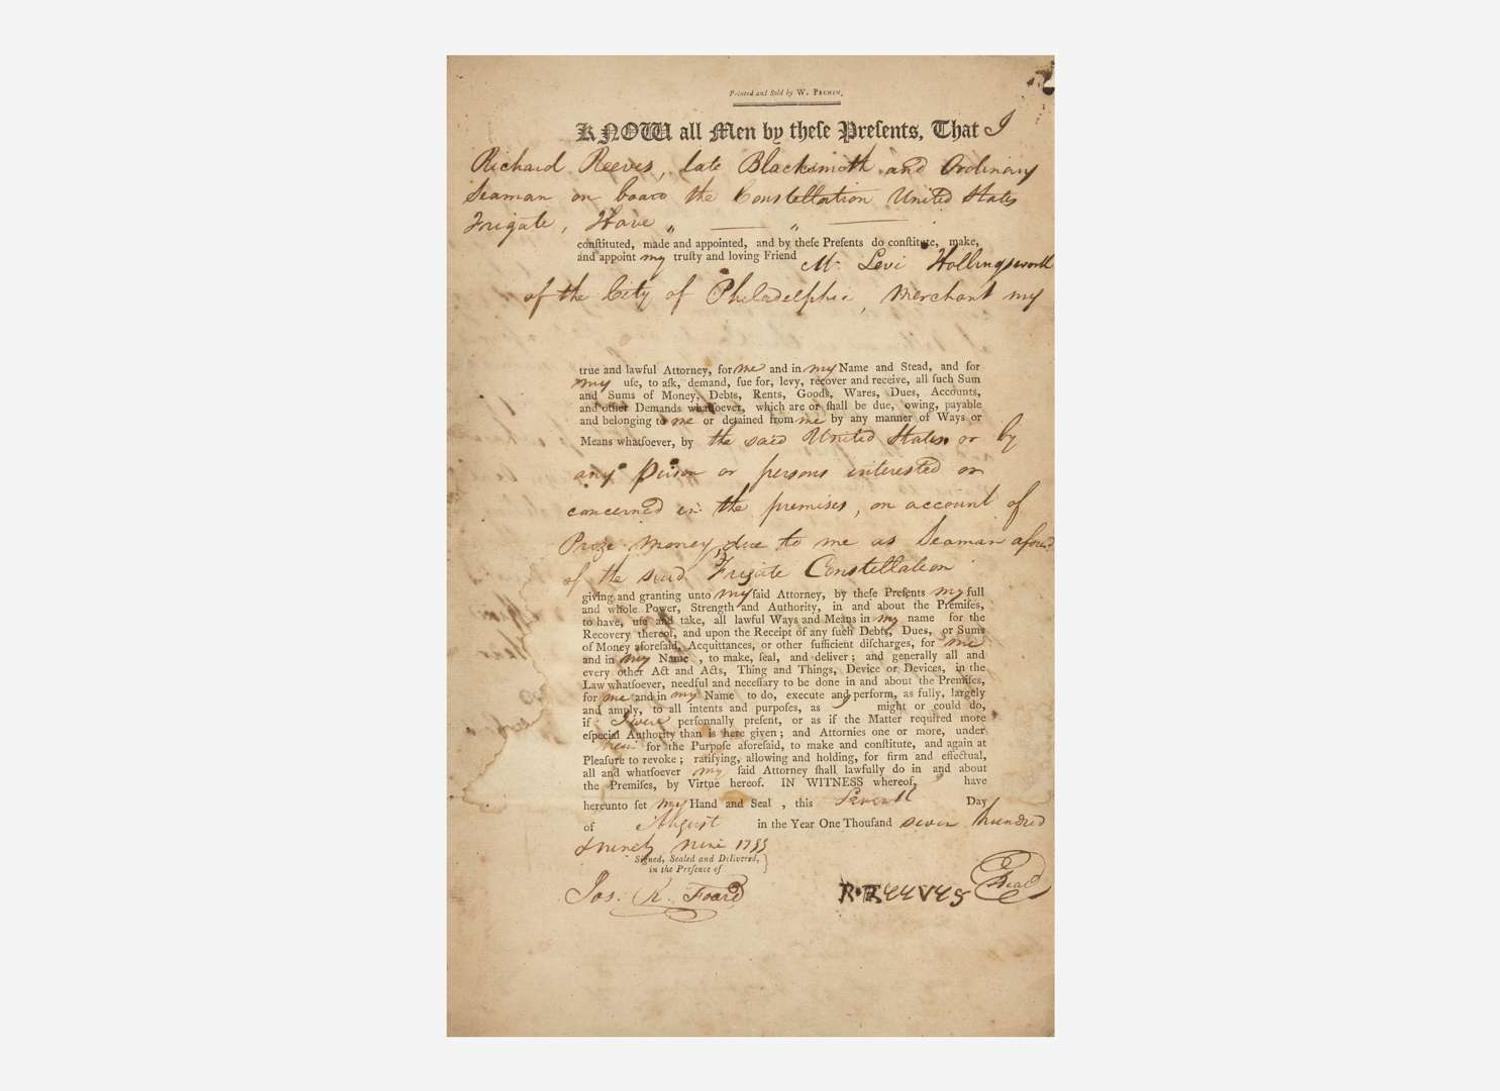 Printed and Sold by W. PECHIN.
KNOW all Men by theſe Preſents, That I
Richard Reeves, late Blacksmith and Ordinary
Seaman on board the Constellation United States
Frigate, Have „ —— „ ——
conſtituted, made and appointed, and by theſe Preſents do conſtitute, make,
and appoint my truſty and loving Friend Mr Levi Hollingsworth
of the City of Philadelphia, Merchant my
true and lawful Attorney, for me and in my Name and Stead, and for
my uſe, to aſk, demand, ſue for, levy, recover and receive, all ſuch Sum
and Sums of Money, Debts, Rents, Goods, Wares, Dues, Accounts,
and other Demands whatſoever, which are or ſhall be due, owing, payable
and belonging to me or detained from me by any manner of Ways or
Means whatſoever, by the said United States or by
any person or persons interested or
concerned in the premises, on account of
Prize Money, due to me as Seaman afored
of the said Frigate Constellation
giving and granting unto my ſaid Attorney, by theſe Preſents my full
and whole Power, Strength and Authority, in and about the Premiſes,
to have, uſe and take, all lawful Ways and Means in my name for the
Recovery thereof, and upon the Receipt of any ſuch Debts, Dues, or Sums
of Money aforeſaid, Acquittances, or other ſufficient diſcharges, for me
and in my Name , to make, ſeal, and deliver ; and generally all and
every other Act and Acts, Thing and Things, Device or Devices, in the
Law whatſoever, needful and neceſſary to be done in and about the Premiſes,
for me and in my Name to do, execute and perform, as fully, largely
and amply, to all intents and purpoſes, as might or could do,
if I were perſonnally preſent, or as if the Matter required more
eſpecial Authority than is here given ; and Attornies one or more, under
for the Purpoſe aforeſaid, to make and conſtitute, and again at
Pleaſure to revoke ; ratifying, allowing and holding, for firm and effectual,
all and whatſoever my ſaid Attorney ſhall lawfully do in and about
the Premiſes, by Virtue hereof. IN WITNESS whereof, have
hereunto ſet my Hand and Seal , this Seventh Day
of August in the Year One Thouſand seven hundred
& ninety nine 1799
Signed, Sealed and Delivered, }
in the Preſence of
Jos. R. Foard R·REEVES Seal